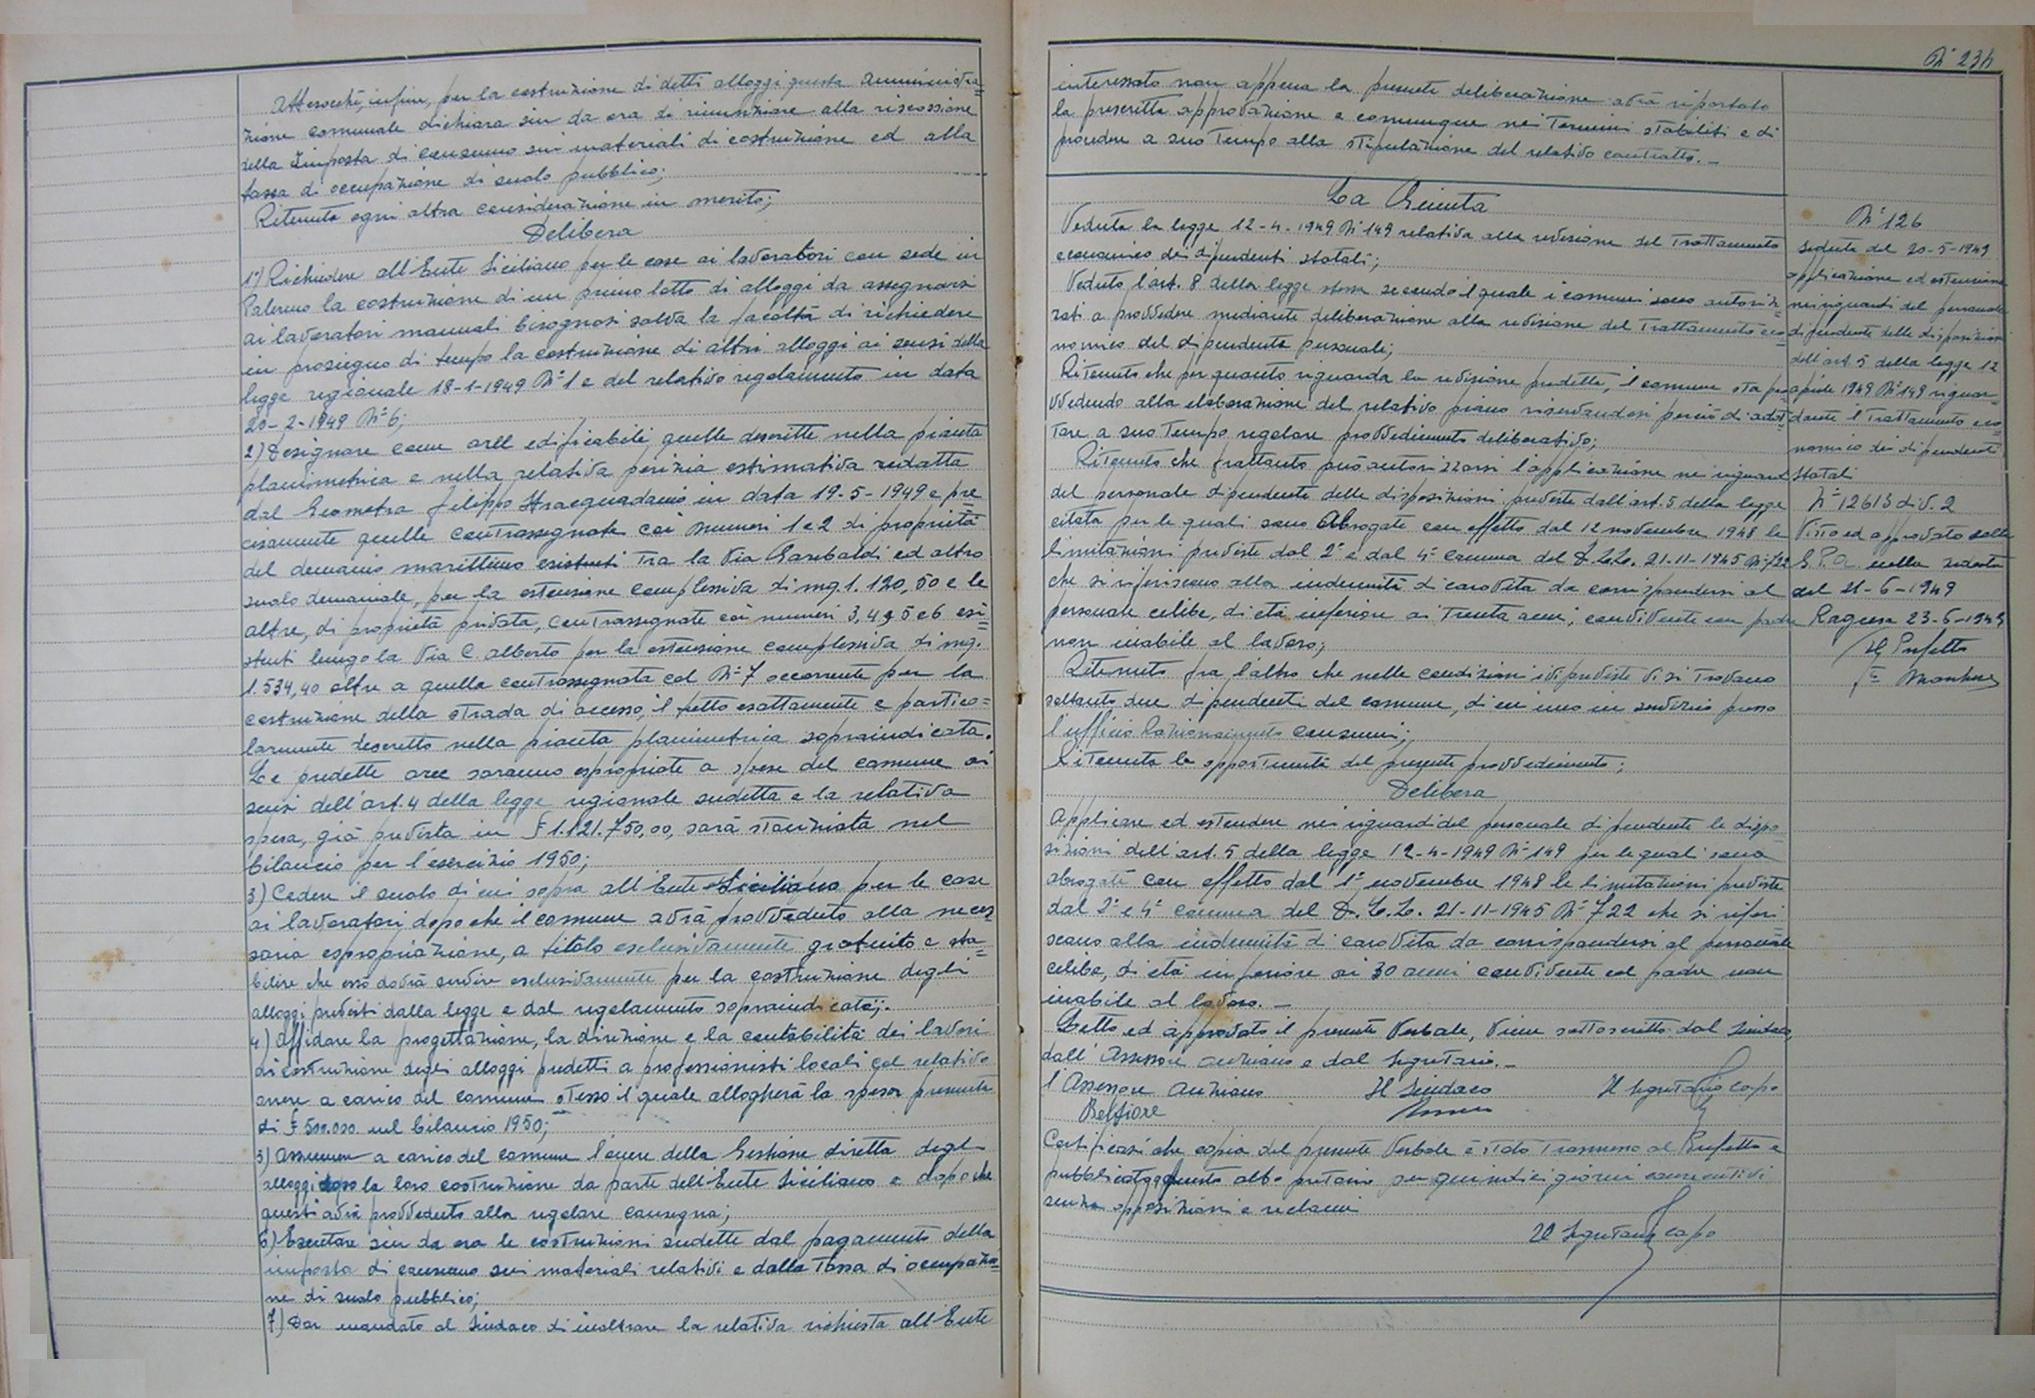 Attesocché, infine, per la costruzione di detti alloggi questa Amministra=
zione comunale dichiara sin da ora di rinunziare alla riscossione
della Imposta di consumo sui materiali di costruzione ed alla
tassa di occupazione di suolo pubblico;
Ritenuta ogni altra considerazione in merito;
Delibera
1°) Richiedere all'Ente Siciliano per le case ai lavoratori con sede in
Palermo la costruzione di un primo lotto di alloggi da assegnarsi
ai lavoratori manuali bisognosi salva la facoltà di richiedere
in prosieguo di tempo la costruzione di altri alloggi ai sensi della
legge regionale 18-1-1949 N° 1 e del relativo regolamento in data
20-2-1949 N° 6;
2) Designare come aree edificabili quelle descritte nella pianta
planimetrica e nella relativa perizia estimativa redatta
dal Geometra Filippo Stracquadanio in data 19-5-1949 e pre
cisamente quelle contrassegnate coi numeri 1 e 2 di proprietà
del demanio marittimo esistenti tra la Via Garibaldi ed altro
suolo demaniale, per la estensione complessiva di mq. 1.120,50 e le
altre, di proprietà privata, contrassegnate coi numeri 3, 4, 5 e 6 esi=
stenti lungo la Via C. Alberto per la estensione complessiva di mq.
1.534,40 oltre a quella contrassegnata col N° 7 occorrente per la
costruzione della strada di accesso, il tutto esattamente e partico=
larmente descritto nella pianta planimetrica sopraindicata.
Le predette aree saranno espropriate a spese del comune ai
sensi dell'art. 4 della legge regionale sudetta e la relativa
spesa, già prevista in £ 1.121.750,00, sarà stanziata nel
bilancio per l'esercizio 1950;
3) Cedere il suolo di cui sopra all'Ente Siciliano per le case
ai lavoratori dopo che il comune avrà provveduto alla neces
saria espropriazione, a titolo esclusivamente gratuito e sta=
bilire che esso dovrà servire esclusivamente per la costruzione degli
alloggi previsti dalla legge e dal regolamento sopraindicati;
4) Affidare la progettazione, la direzione e la contabilità dei lavori
di costruzione degli alloggi predetti a professionisti locali col relativo
onere a carico del comune stesso il quale allogherà la spesa presunta
di £ 500.000 nel bilancio 1950;
5) Assumere a carico del comune l'onere della Gestione diretta degli
alloggi dopo la loro costruzione da parte dell'Ente Siciliano e dopo che
questi avrà provveduto alla regolare consegna;
6) Esentare sin da ora le costruzioni sudette dal pagamento della
imposta di consumo sui materiali relativi e dalla Tassa di occupazio=
ne di suolo pubblico;
7) Dar mandato al Sindaco di inoltrare la relativa richiesta all'Ente
N° 234
interessato non appena la presente deliberazione avrà riportato
la prescritta approvazione e comunque nei Termini stabiliti e di
procedere a suo Tempo alla stipulazione del relativo contratto. -
La Giunta
Veduta la legge 12-4-1949 N° 149 relativa alla revisione del Trattamento
economico dei dipendenti statali;
Veduto l'art. 8 della legge stessa secondo il quale i comuni sono autoriz
zati a provvedere mediante deliberazione alla revisione del Trattamento eco=
nomico del dipendente personale;
Ritenuto che per quanto riguarda la revisione predetta, il comune sta pro
vvedendo alla elaborazione del relativo piano riservandosi perciò di adot
tare a suo Tempo regolare provvedimento deliberativo;
Ritenuto che frattanto può autorizzarsi l'applicazione nei riguardi
del personale dipendente delle disposizioni previste dall'art. 5 della legge
citata per le quali sono abrogate con effetto dal 12 novembre 1948 le
limitazioni previste dal 2° e dal 4° comma del D.L.L. 21-11-1945 N° 722
che si riferiscono alla indennità di carovita da corrispondersi al
personale celibe, di età inferiore ai trenta anni, convivente con padre
non inabile al lavoro;
Ritenuto fra l'altro che nelle condizioni ivi previste vi si trovano
soltanto due dipendenti del comune, di cui uno in servizio presso
l'ufficio Razionamento consumi;
Ritenuta la opportunità del presente provvedimento;
Delibera
Applicare ed estendere nei riguardi del personale dipendente le dispo
sizioni dell'art. 5 della legge 12-4-1949 N° 149 per le quali sono
abrogati con effetto dal 1° novembre 1948 le limitazioni previste
dal 2° e 4° comma del D.L.L. 21-11-1945 N° 722 che si riferi
scono alla indennità di carovita da corrispondersi al personale
celibe, di età inferiore ai 30 anni convivente col padre non
inabile al lavoro. -
Letto ed approvato il presente Verbale, viene sottoscritto dal Sindaco,
dall'Assessore anziano e dal Segretario. -
l'Assessore anziano Il Sindaco Il Segretario capo
Belfiore
Certificasi che copia del presente Verbale è stato Trasmesso al Prefetto e
pubblicato a questo albo pretorio per quindici giorni consecutivi
senza opposizioni e reclami
Il Segretario capo
N° 126
seduta del 20-5-1949
applicazione ed estensione
nei riguardi del personale
dipendente delle disposizioni
dell'art. 5 della legge 12
aprile 1949 N° 149 riguar=
dante il Trattamento eco=
nomico dei dipendenti
statali
N° 12613 div. 2
Visto ed approvato dalla
G.P.A. nella seduta
del 21-6-1949
Ragusa 23-6-1949
Il Prefetto